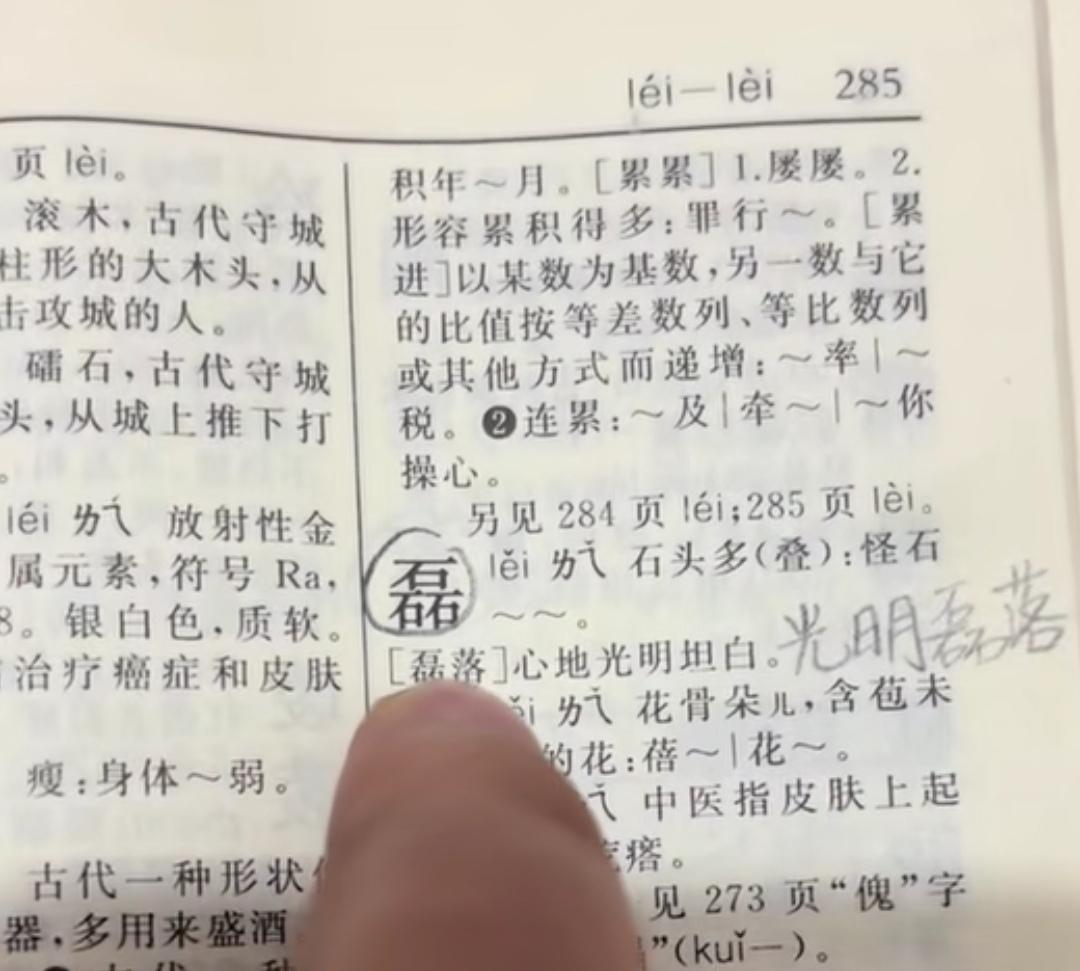 léi—lèi 285
页 lèi。
滚木，古代守城
柱形的大木头，从
击攻城的人。
礌石，古代守城
头，从城上推下打
。
léi ㄌㄟˊ 放射性金
属元素，符号 Ra，
8。银白色，质软。
治疗癌症和皮肤
瘦：身体～弱。
古代一种形状
器，多用来盛酒
积年～月。［累累］1.屡屡。2.
形容累积得多：罪行～。［累
进］以某数为基数，另一数与它
的比值按等差数列、等比数列
或其他方式而递增：～率|～
税。❷连累：～及|牵～|～你
操心。
另见 284 页 léi；285 页 lèi。
磊 lěi ㄌㄟˇ 石头多（叠）：怪石
～～。
［磊落］心地光明坦白。光明磊落
ěi ㄌㄟˇ 花骨朵儿，含苞未
的花：蓓～|花～。
中医指皮肤上起
疙瘩。
见 273 页“傀”字
”（kuǐ—）。